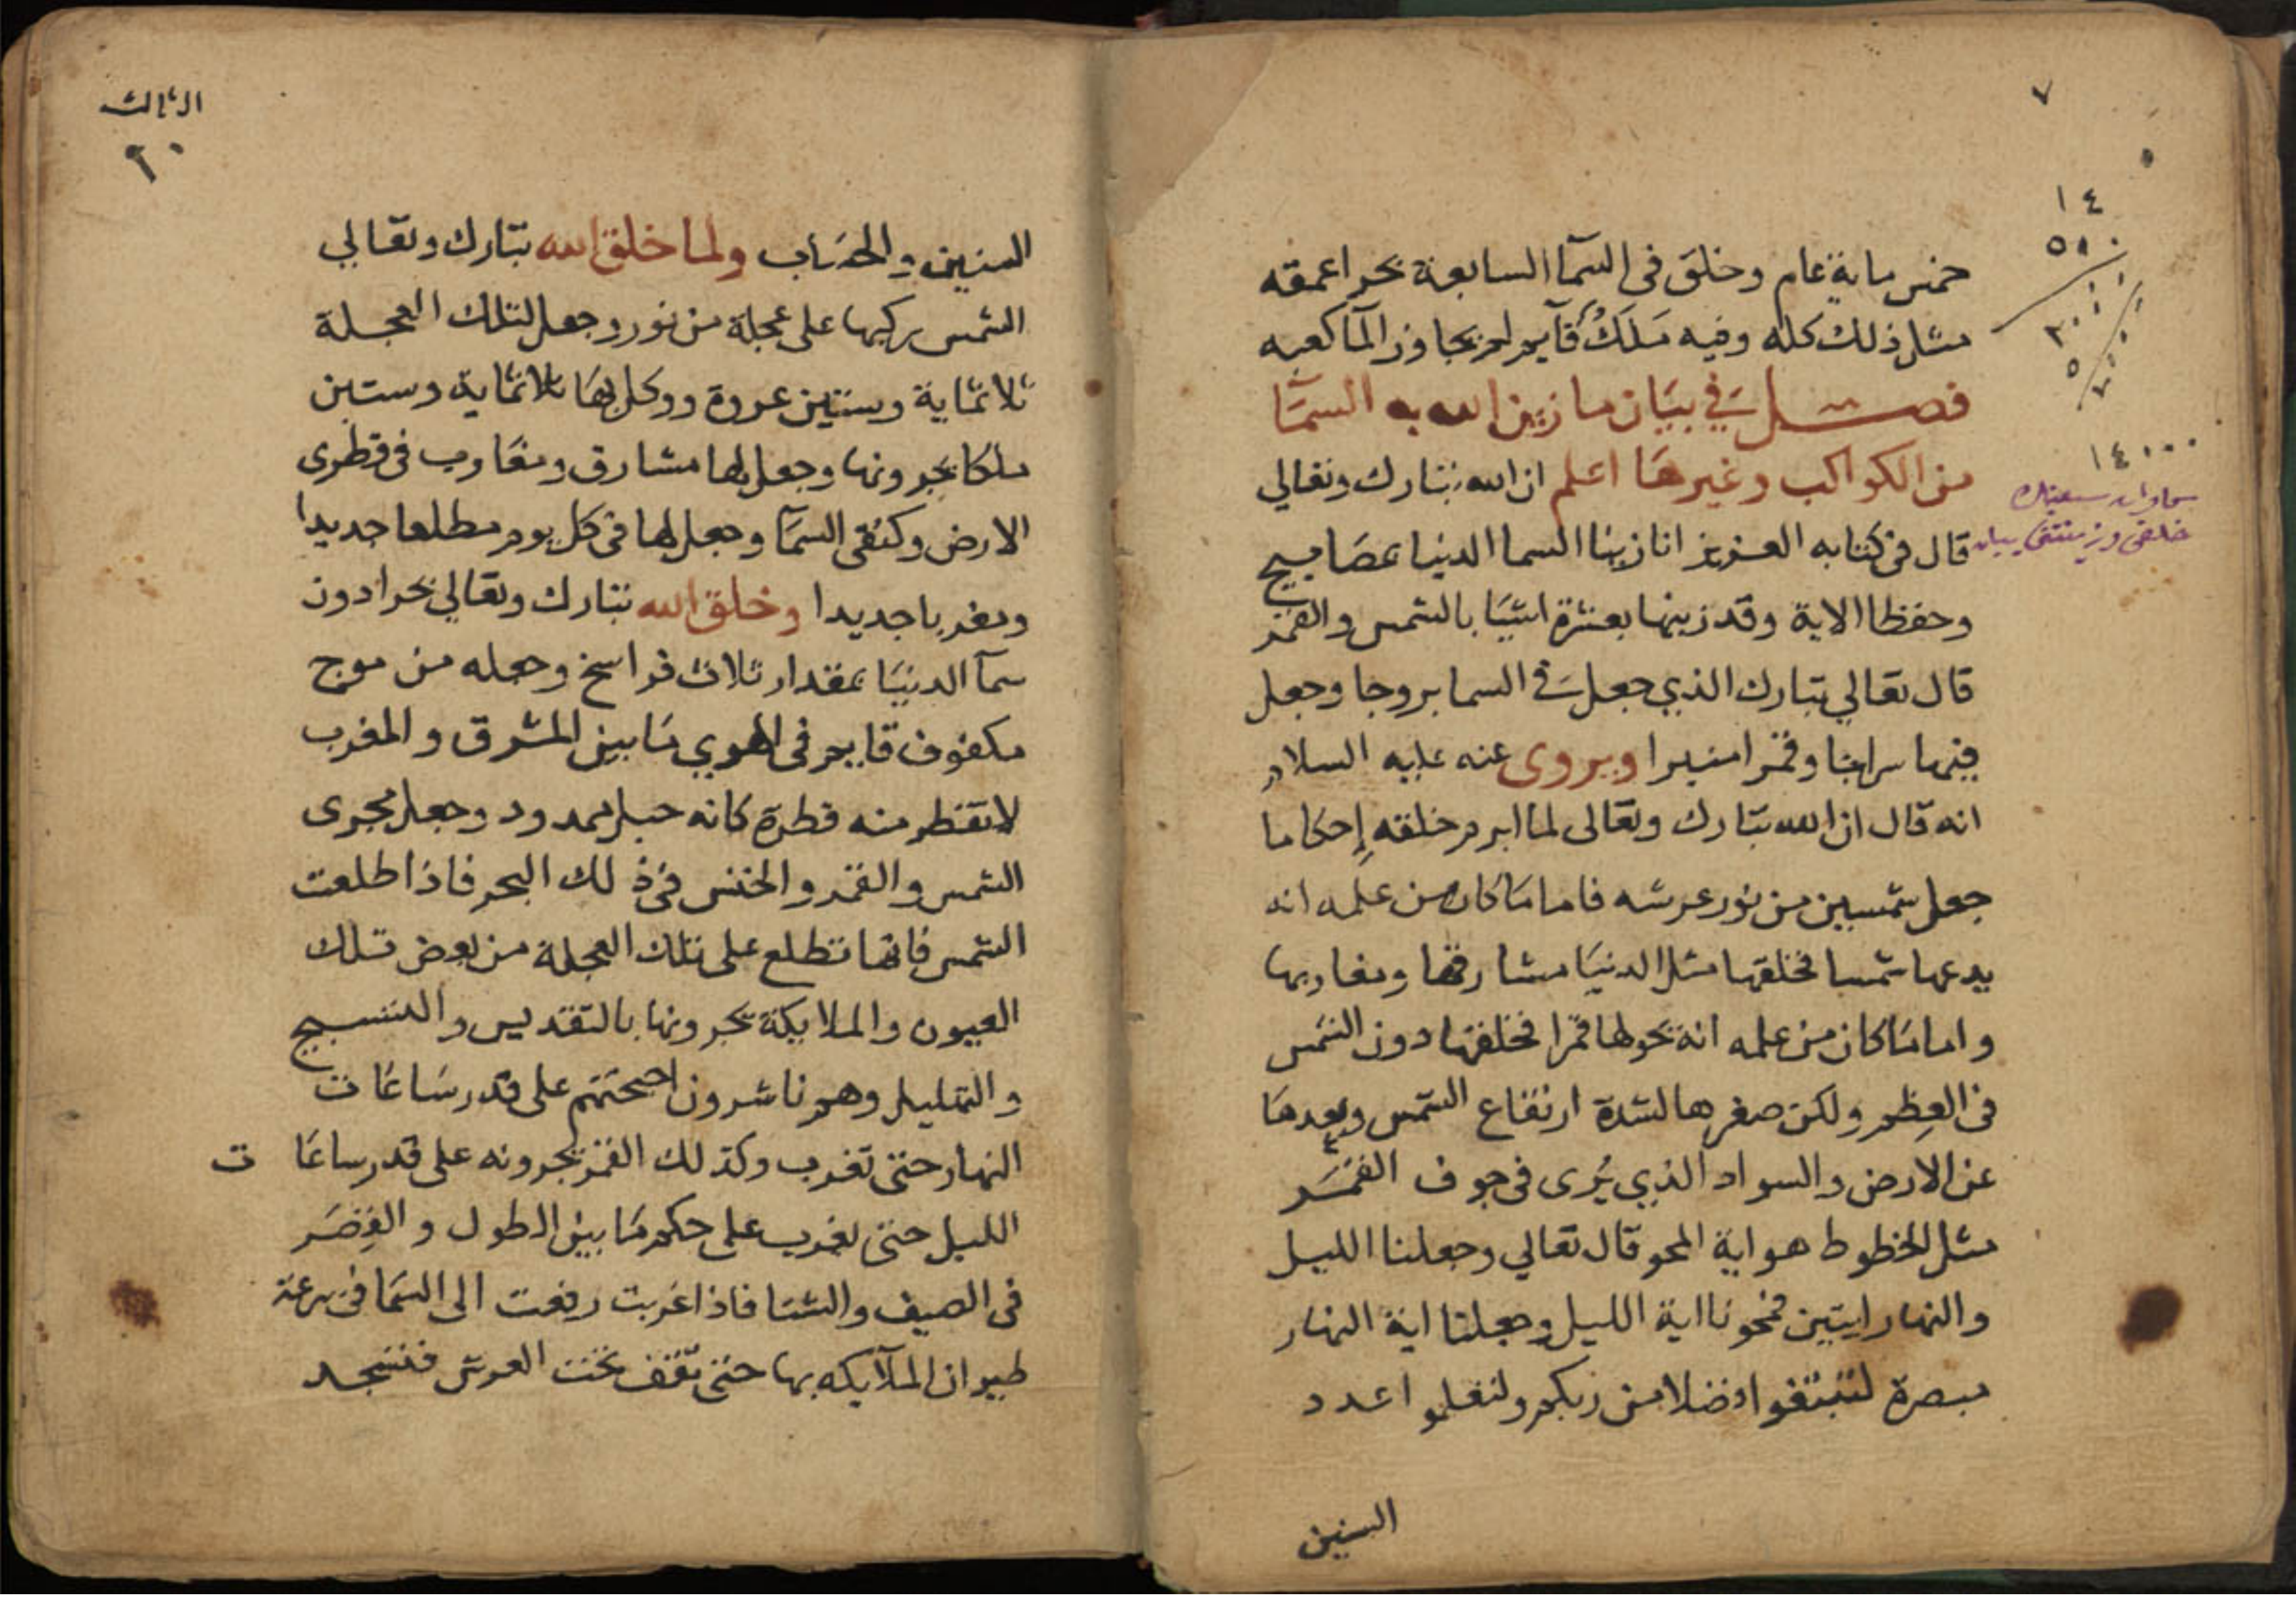 ٧
١٤
٥٠٠
١٤٠٠٠
خمس ماية عام وخلق فى السمآ السابعة بحرا عمقه
مثل ذلك كله وفيه ملك قآيم لم يجاوز المآ كعبه
فصل في بيان ما زين الله به السمآ
من الكواكب وغيرها اعلم ان الله تبارك وتعالي
قال فى كتابه العزيز انا زينا السما الدنيا بمصابيح
وحفظا الاية وقد زينها بعشرة اشيا بالشمس والقمر
قال تعالي تبارك الذي جعل في السما بروجا وجعل
فيها سراجا وقمرا منيرا ويروى عنه عليه السلام
انه قال ان الله تبارك وتعالى لما ابرم خلقه إحكاما
جعل شمسين من نور عرشه فاما ما كان من علمه انه
يدعها شمسا فخلقها مثل الدنيا مشارقها ومغاربها
واما ما كان من علمه انه يحولها قمرا فخلقها دون الشمس
فى العِظم ولكن صغرها لشدة ارتفاع الشمس وبعدها
عن الارض والسواد الذي يُرى فى جوف القمر
مثل الخطوط هو اية المحو قال تعالي وجعلنا الليل
والنهار ايتين فمحونا اية الليل وجعلنا اية النهار
مبصرة لتبتغوا فضلا من ربكم ولتعلموا عدد
السنين
الثالث
٢٠
السنين والحساب ولما خلق الله تبارك وتعالي
الشمس ركبها على عجلة من نور وجعل لتلك العجلة
ثلاثماية وستين عروة ووكل بها ثلاثماية وستين
ملكا يجرونها وجعل لها مشارق ومغارب فى قطرى
الارض وكنفى السمآ وجعل لها فى كل يوم مطلعا جديدا
ومغربا جديدا وخلق الله تبارك وتعالي بحرا دون
سمآ الدنيا بمقدار ثلاث فراسخ وجعله من موج
مكفوف قايم فى الهوي ما بين المشرق والمغرب
لا تقطر منه قطرة كانه حبل ممدود وجعل مجرى
الشمس والقمر والخنس فى ذلك البحر فاذا طلعت
الشمس فانها تطلع على تلك العجلة من بعض تلك
العيون والملايكة يجرونها بالتقديس والتسبيح
والتهليل وهم ناشرون اجنحتهم على قدر ساعات
النهار حتى تغرب وكذلك القمر يجرونه على قدر ساعات
الليل حتى يغرب على حكم ما بين الطول والقِصَر
فى الصيف والشتا فاذا غربت رفعت الى السما فى سرعة
طيران الملآيكه بها حتى تقف تحت العرش فتسجد